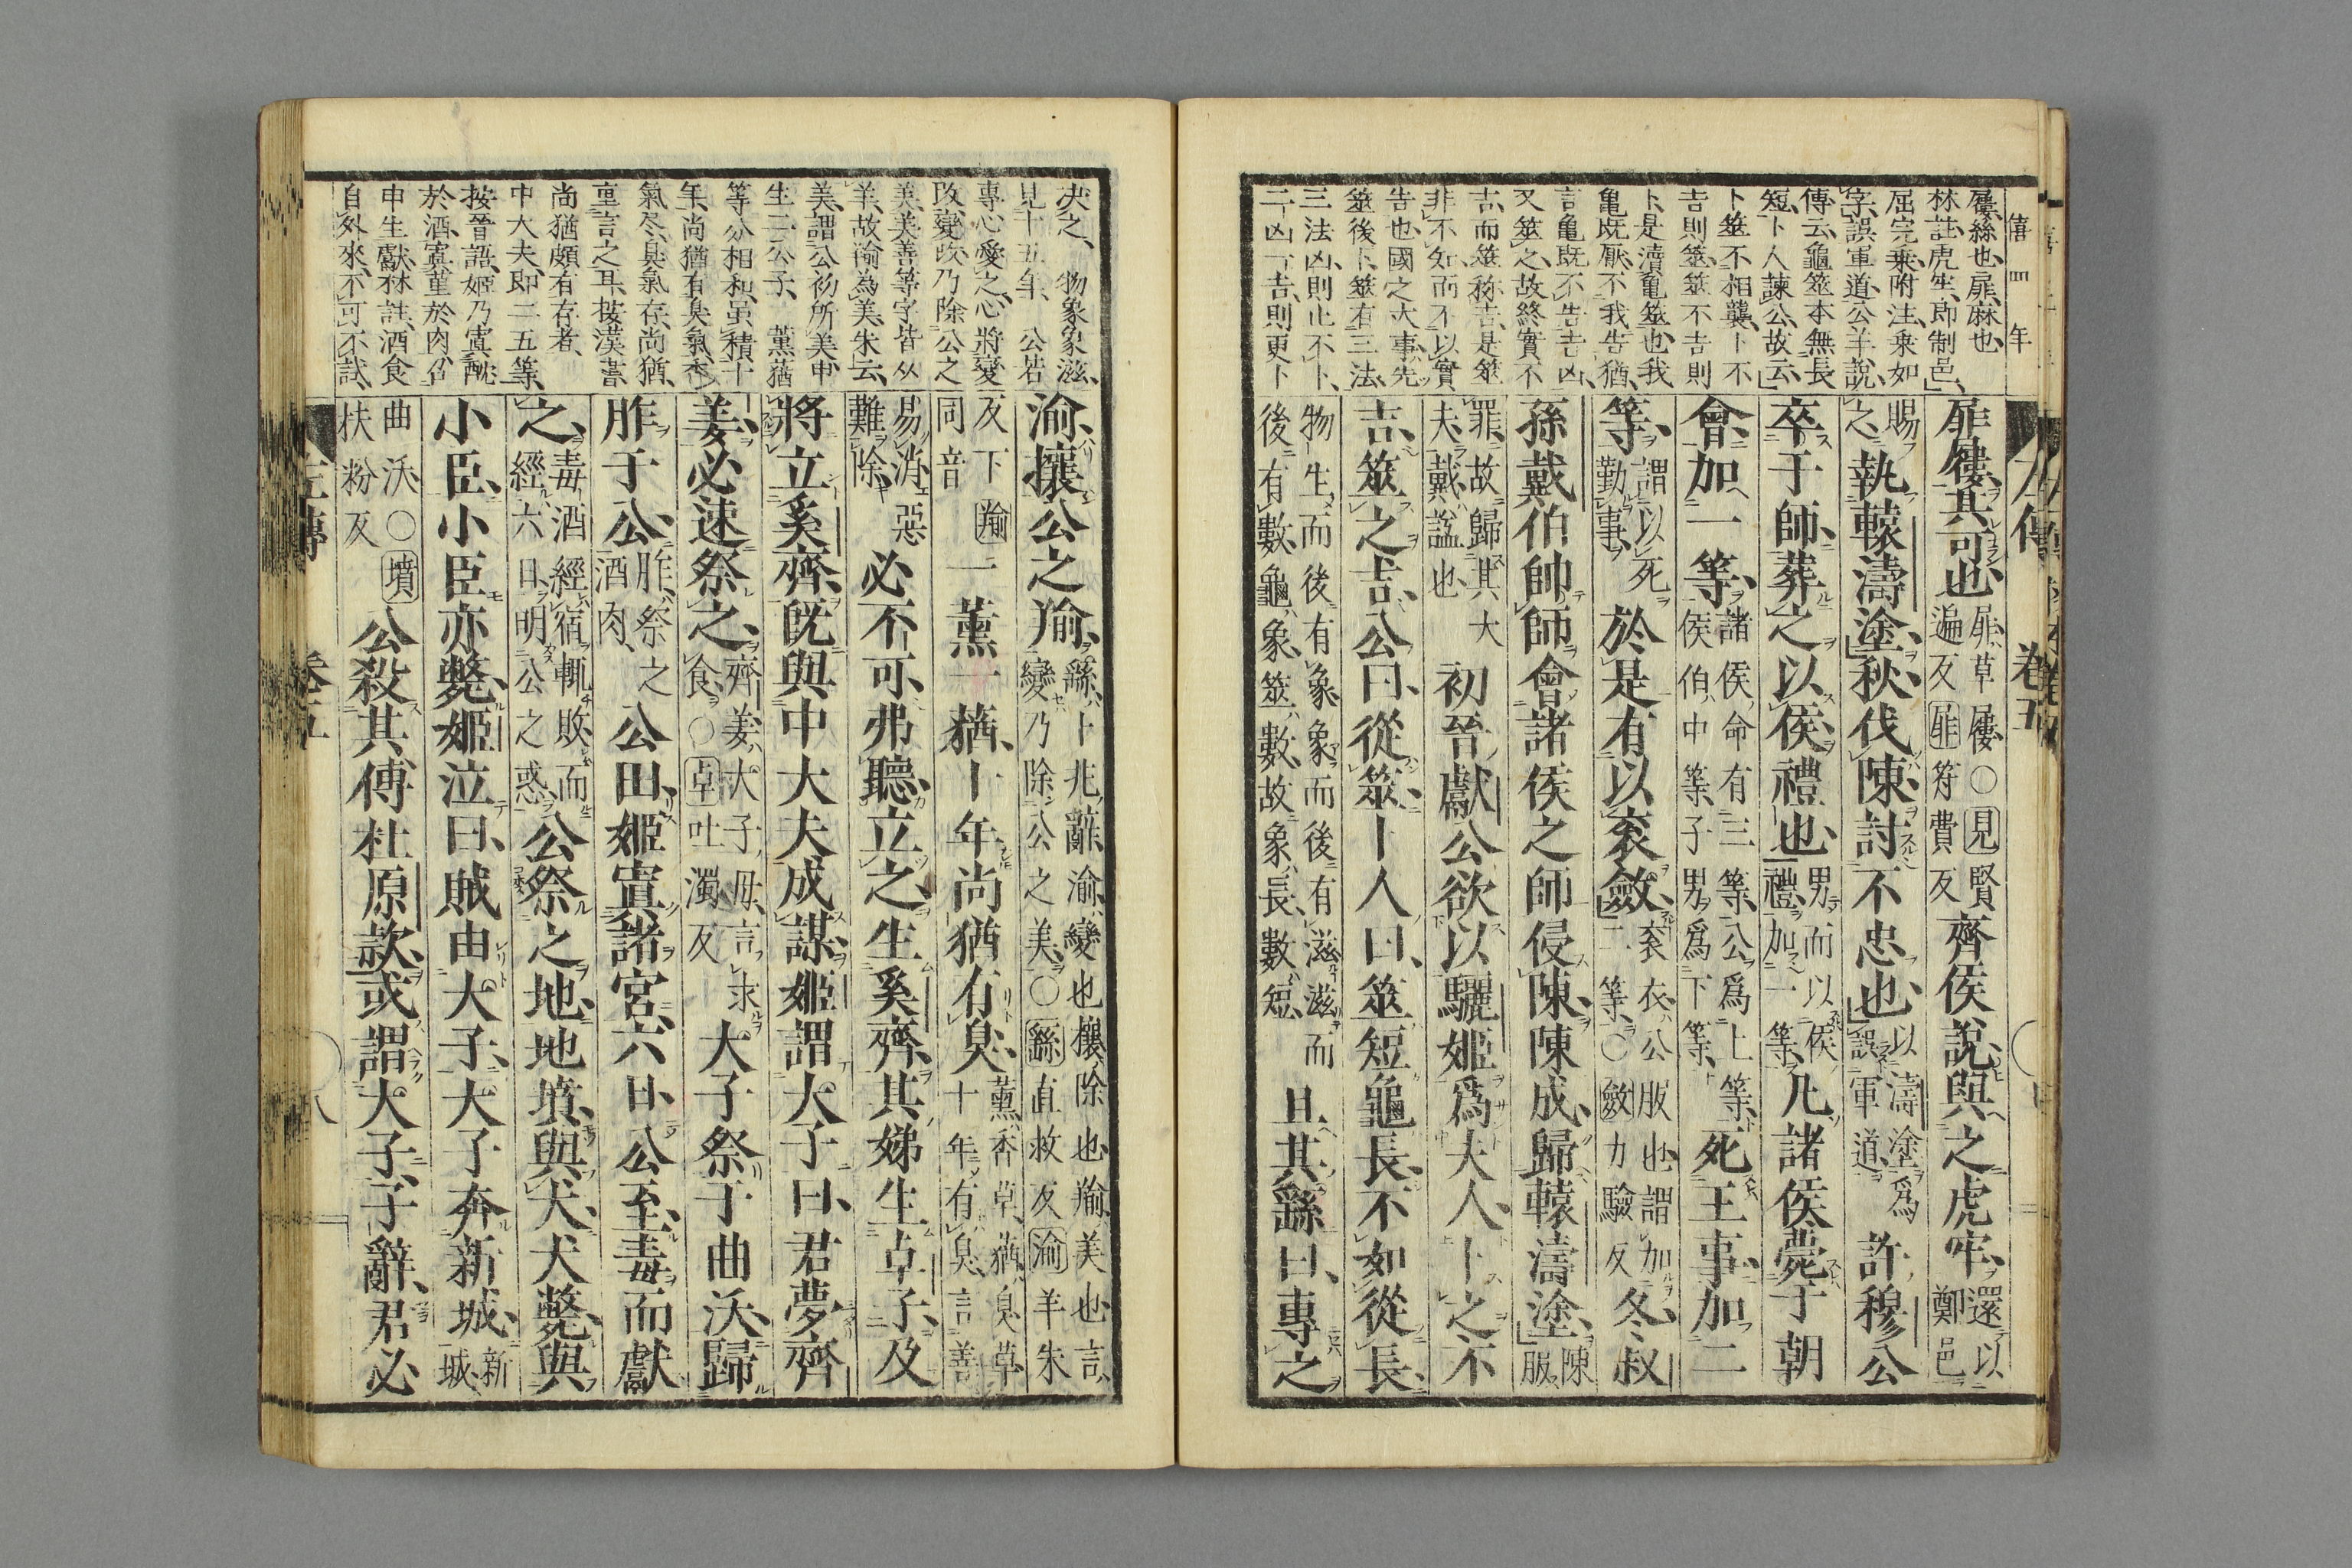 僖四年
屨絲也、扉麻也、
林註虎牢、即制邑、
屈完乗、附注、乗如
字、誤軍道、公羊說、
傳云、龜筮本無長
短、卜人諫公故云、
卜筮不相襲、卜不
吉則筮、筮不吉則
卜、是瀆龜筮也我
亀既厭、不我告猶、
言亀既不告吉凶、
又筮之、故終實不
吉、而筮称吉、是筮
非不知而不以實
告也、國之大事、先
筮後卜、筮有三法、
三法凶、則止不卜、
二凶一吉、則更卜
左傳 卷五
扉屨、其可也、扉、草屨、〇見賢遍反扉符費反齊侯說、與之虎牢、還以鄭邑
賜之、執轅濤塗、秋、伐陳、討不忠也、以濤塗爲誤軍道、許穆公
卒于師、葬之以侯、禮也、男而以侯禮、加一等、凡諸侯薨于朝
會、加一等、諸侯、命有三等、公爲上等、侯伯、中等、子男爲下等、死王事、加二
等、謂以死勤事、於是有以袞斂、袞衣、公服也、謂加二等、〇斂力驗反冬、叔
孫戴伯帥師、會諸侯之師侵陳、陳成、歸轅濤塗、陳服
罪、故歸其大夫、戴、謚也初晉獻公欲以驪姬爲夫人、卜之不
吉、筮之吉、公曰、從筮、卜人曰、筮短龜長、不如從長、
物生、而後有象、象而後有滋、滋而後有數、龜象、筮數、故象長、數短、且其繇曰、專之
決之、 物象象滋、
見十五年、 公若
專心愛之、心將變
改、變改乃除公之
美、美善等字皆从
羊、故渝為美、朱云、
美、謂公初所美申
生二公子、 薫蕕
等分相和、虽積十
年、尚猶有臭氣、香
氣尽、臭氣存、尚猶、
重言之耳、按漢書
尚猶頗有存者、
中大夫、即二五等、
按晉語、姬乃寘酖
於酒、寘菫於肉、召
申生獻、林註、酒食
自外來、不可不試、
渝、攘公之羭、繇、卜兆辭、渝、變也、攘、除也、羭、美也、言、變乃除公之美、〇繇直救反渝羊朱
反下同音羭一薰一蕕、十年尚猶有臭、薰、香草、蕕、臭草、十年有臭、言善
易消惡難除必不可、弗聽、立之、生奚齊、其娣生卓子、及
將立奚齊、旣與中大夫成謀、姬謂大子曰、君夢齊
姜、必速祭之、齊姜、大子母、言求食、〇卓吐濁反大子祭于曲沃、歸
胙于公、胙、祭之酒肉、公田、姬寘諸宮、六日、公至、毒而獻
之、毒酒經宿輒敗、而經六日、明公之惑、公祭之地、地墳、與犬、犬斃、與
小臣、小臣亦斃、姬泣曰、賊由大子、大子奔新城、新城
曲沃〇墳扶粉反公殺其傅杜原款、或謂大子、子辭、君必
左傳 卷五 八